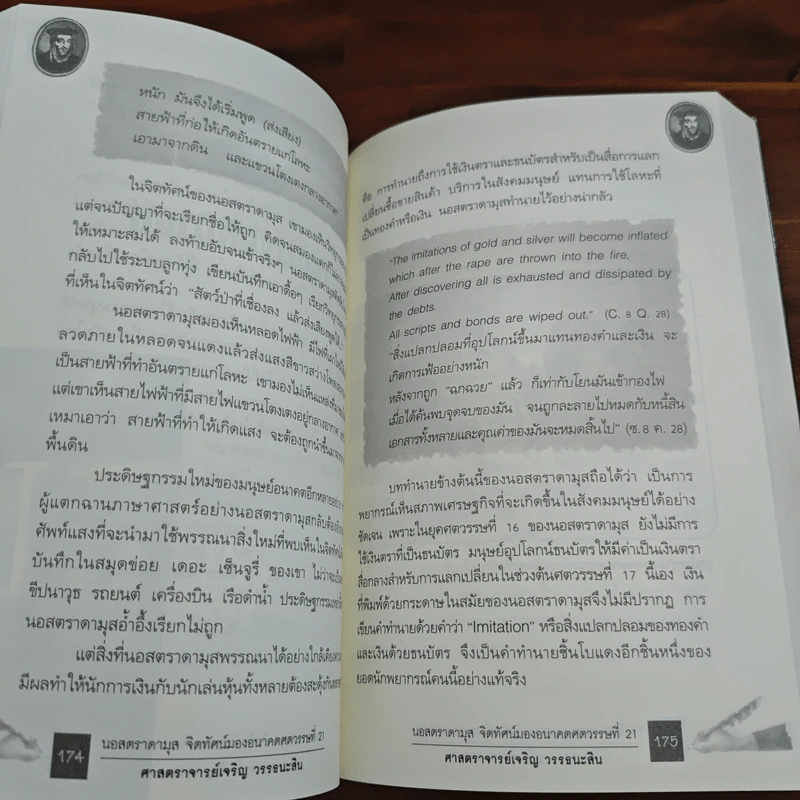 หนัก มันจึงได้เริ่มพูด (ส่งเสียง)
สายฟ้าที่ก่อให้เกิดอันตรายแก่โลหะ
เอามาจากดิน และแขวนโตงเตงกลางอากาศ
ในจิตทัศน์ของนอสตราดามุส เขามองเห็นวิทยุ
แต่จนปัญญาที่จะเรียกชื่อให้ถูก คิดจนสมองแตกก็ไม่
ให้เหมาะสมได้ ลงท้ายอับจนเข้าจริงๆ นอสตราดามุส
กลับไปใช้ระบบลูกทุ่ง เขียนบันทึกเอาดื้อๆ เรียกวิทยุ
ที่เห็นในจิตทัศน์ว่า "สัตว์ป่าที่เชื่องลง แล้วส่งเสียงพูดได้
นอสตราดามุสมองเห็นหลอดไฟฟ้า มีไฟที่
ลวดภายในหลอดจนแดงแล้วส่งแสงสีขาวสว่าง
เป็นสายฟ้าที่ทำอันตรายแก่โลหะ เขามองไม่เห็นแหล่ง
แต่เขาเห็นสายไฟฟ้าที่มีสายไฟแขวนโตงเตงอยู่กลางอากาศ
เหมาเอาว่า สายฟ้าที่ทำให้เกิดแสง จะต้องถูกนำขึ้นมาจาก
พื้นดิน
ประดิษฐกรรมใหม่ของมนุษย์อนาคตอีกหลายอย่าง
ผู้แตกฉานภาษาศาสตร์อย่างนอสตราดามุสกลับต้อง
ศัพท์แสงที่จะนำมาใช้พรรณนาสิ่งใหม่ที่พบเห็นในจิตทัศน์
บันทึกในสมุดข่อย เดอะ เซ็นจูรี่ ของเขา ไม่ว่าจะเป็น
ขีปนาวุธ รถยนต์ เครื่องบิน เรือดำน้ำ ประดิษฐกรรม
นอสตราดามุสอ้ำอึ้งเรียกไม่ถูก
แต่สิ่งที่นอสตราดามุสพรรณนาได้อย่างใกล้เคียง
มีผลทำให้นักการเงินกับนักเล่นหุ้นทั้งหลายต้องสะดุ้ง
174
นอสตราดามุส จิตทัศน์มองอนาคตศตวรรษที่ 21
ศาสตราจารย์เจริญ วรรธนะสิน
คือ การทำนายถึงการใช้เงินตราและธนบัตรสำหรับเป็นสื่อการแลก
เปลี่ยนซื้อขายสินค้า บริการในสังคมมนุษย์ แทนการใช้โลหะที่
เป็นทองคำหรือเงิน นอสตราดามุสทำนายไว้อย่างน่ากลัว
"The imitations of gold and silver will become inflated
which after the rape are thrown into the fire,
After discovering all is exhausted and dissipated by
the debts.
All scripts and bonds are wiped out." (C. 8 Q. 28)
"สิ่งแปลกปลอมที่อุปโลกน์ขึ้นมาแทนทองคำและเงิน จะ
เกิดการเฟ้ออย่างหนัก
หลังจากถูก "ฉกฉวย" แล้ว ก็เท่ากับโยนมันเข้ากองไฟ
เมื่อได้ค้นพบจุดจบของมัน จนถูกละลายไปหมดกับหนี้สิน
เอกสารทั้งหลายและคุณค่าของมันจะหมดสิ้นไป" (ซ. 8 ค. 28)
บททำนายข้างต้นนี้ของนอสตราดามุสถือได้ว่า เป็นการ
พยากรณ์เห็นสภาพเศรษฐกิจที่จะเกิดขึ้นในสังคมมนุษย์ได้อย่าง
ชัดเจน เพราะในยุคศตวรรษที่ 16 ของนอสตราดามุส ยังไม่มีการ
ใช้เงินตราที่เป็นธนบัตร มนุษย์อุปโลกน์ธนบัตรให้มีค่าเป็นเงินตรา
สื่อกลางสำหรับการแลกเปลี่ยนในช่วงต้นศตวรรษที่ 17 นี้เอง เงิน
ที่พิมพ์ด้วยกระดาษในสมัยของนอสตราดามุสจึงไม่มีปรากฏ การ
เขียนคำทำนายด้วยคำว่า "Imitation" หรือสิ่งแปลกปลอมของทองคำ
และเงินด้วยธนบัตร จึงเป็นคำทำนายชิ้นโบแดงอีกชิ้นหนึ่งของ
ยอดนักพยากรณ์คนนี้อย่างแท้จริง
นอสตราดามุส จิตทัศน์มองอนาคตศตวรรษที่ 21
175
ศาสตราจารย์เจริญ วรรธนะสิน